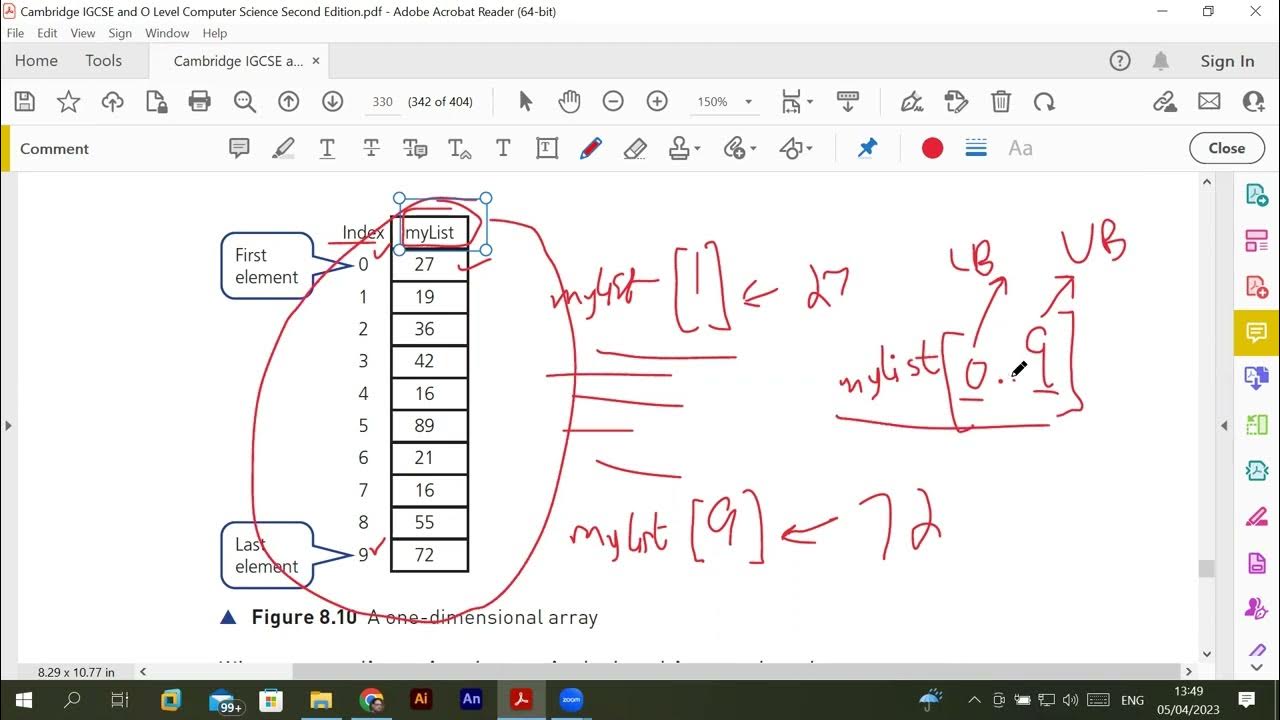 Cambridge IGCSE and O Level Computer Science Second Edition.pdf - Adobe Acrobat Reader (64-bit)
File Edit View Sign Window Help
Home Tools Cambridge IGCSE a... × Sign In
330 (342 of 404) 150%
Comment Aa Close
Index myList
First element
0 27
1 19
2 36
3 42
4 16
5 89
6 21
7 16
8 55
Last element
9 72
mylist [1] ← 27
LB UB
mylist [0..9]
mylist [9] ← 72
▲ Figure 8.10 A one-dimensional array
8.29 x 10.77 in
99+ Ai An zoom ENG 13:49
05/04/2023